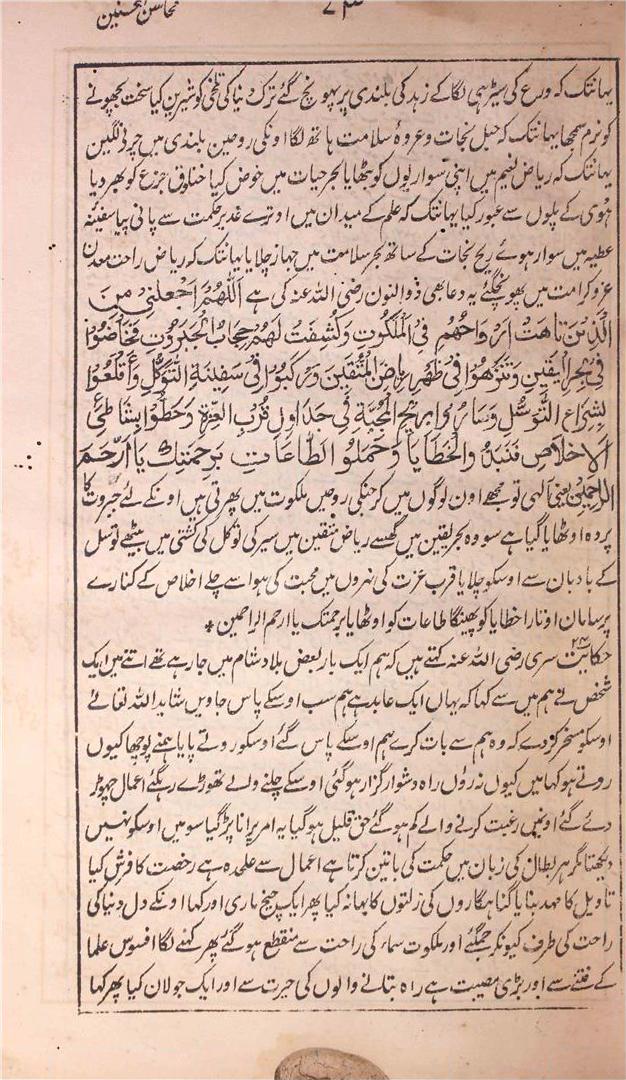 محاسن المحسنین
یہانتک کہ ورع کی سیڑہی لگا کے زہد کی بلندی پر پہونچ گئے ترک دنیا کی تلخی کو شیرین کیا سخت بچھونے
کو نرم سمجہا یہانتک کہ حبل نجات و عروۂ سلامت ہاتھ لگا اونکی روحین بلندی میں چرنے لگین
یہانتک کہ ریاض نعیم میں اپنی سواریوں کو بٹھایا بحر حیات میں خوض کیا خنادق جزع کو بھر دیا
ہوٰی کے پلوں سے عبور کیا یہانتک کہ علم کے میدان میں اوترے غدیر حکمت سے پانی پیا سفینۂ
عطیہ میں سوار ہوئے ریح نجات کے ساتھ بحر سلامت میں جہاز چلایا یہانتک کہ ریاض راحت معدن
عز و کرامت میں پھونچگئے یہ دعا بھی ذو النون رضی اللہ عنہ کی ہے اَللّٰهُمَّ اجْعَلْنِيْ مِنَ
الَّذِيْنَ تَاهَتْ اَرْوَاحُهُمْ فِي الْمَلَكُوْتِ وَكُشِفَتْ لَهُمْ حِجَابُ الْجَبَرُوْتِ فَخَاضُوْا
فِيْ بَحْرِ الْيَقِيْنِ وَتَنَزَّهُوْا فِيْ ظَهْرِ رِيَاضِ الْمُتَّقِيْنَ وَرَكِبُوْا فِيْ سَفِيْنَةِ التَّوَكُّلِ وَاَقْلَعُوْا
بِشِرَاعِ التَّوَسُّلِ وَسَارُوْا بِرِيْحِ الْمَحَبَّةِ فِيْ جَدَاوِلِ قُرْبِ الْعِزَّةِ وَحَطُّوْا بِشَاطِئِ
الْاِخْلَاصِ فَنَبَذُوا الْخَطَايَا وَحَمَلُوا الطَّاعَاتِ بِرَحْمَتِكَ يَا اَرْحَمَ
الرَّاحِمِيْنَ یعنی الٰہی تو مجھے اون لوگوں میں کر جنکی روحیں ملکوت میں پھرتی ہیں اونکے لئے جبروت کا
پردہ اوٹھایا گیا ہے سو وہ بحر یقین میں گھسے ریاض متقین میں سیر کی توکل کی کشتی میں بیٹھے توسل
کے بادبان سے اوسکو چلایا قرب عزت کی نہروں میں محبت کی ہوا سے چلے اخلاص کے کنارے
پر سامان اوتارا خطایا کو پھینکا طاعات کو اوٹھایا برحمتک یا ارحم الراحمین *
حکایت سری رضی اللہ عنہ کہتے ہیں کہ ہم ایک بار بعض بلاد شام میں جا رہے تھے اتنے میں ایک
شخص نے ہم میں سے کہا کہ یہاں ایک عابد ہے ہم سب اوسکے پاس جاویں شاید اللہ تعالےٰ
اوسکو مسخر کر دے کہ وہ ہم سے بات کرے ہم اوسکے پاس گئے اوسکو روتے پایا ہمنے پوچھا کیوں
روتے ہو کہا میں کیوں نہ رؤں راہ دشوار گزار ہوگئی اوسکے چلنے والے تھوڑے رہگئے اعمال چھوڑ
دئے گئے اونمیں رغبت کرنے والے کم ہوگئے حق قلیل ہوگیا یہ امر پرانا پڑگیا سو میں اوسکو نہیں
دیکھتا مگر ہر بطال کی زبان میں حکمت کی باتیں کرتا ہے اعمال سے علٰحدہ ہے رخصت کا فرش کیا
تاویل کا مہد بنایا گناہگاروں کی زلتوں کا بہانہ کیا پھر ایک چیخ ماری اور کہا اونکے دل دنیا کی
راحت کی طرف کیونکر جمگئے اور ملکوت سماء کی راحت سے منقطع ہوگئے پھر کہنے لگا افسوس علما
کے فتنے سے اور بڑی مصیبت ہے راہ بتانے والوں کی حیرت سے اور ایک جولان کیا پھر کہا